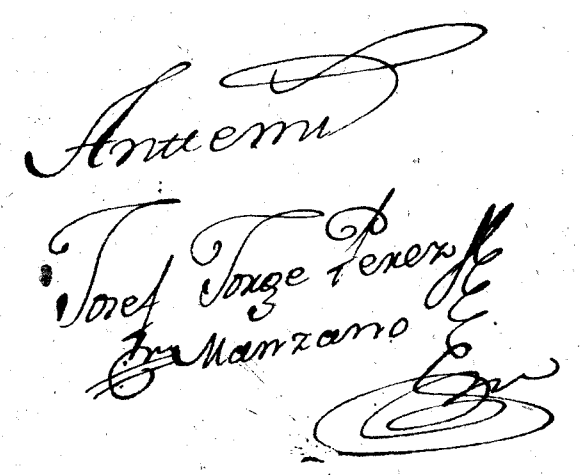 Antt emi
Josef Jorge Perez
Manzano